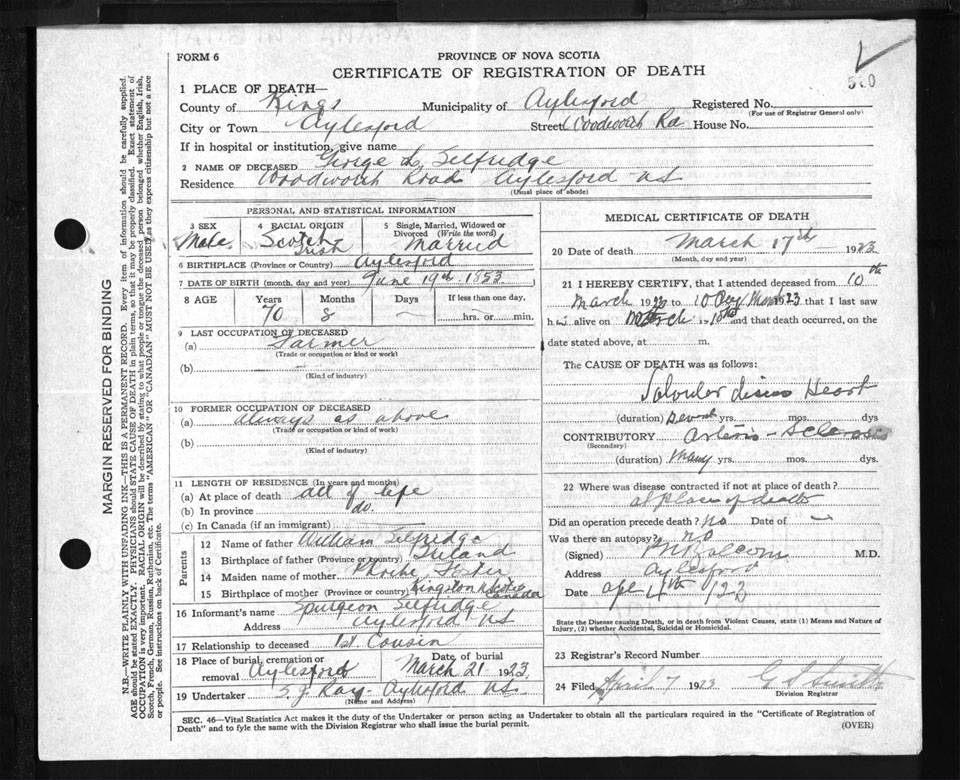 FORM 6
PROVINCE OF NOVA SCOTIA
CERTIFICATE OF REGISTRATION OF DEATH
1 PLACE OF DEATH—
County of Kings Municipality of Aylesford Registered No.
(For use of Registrar General only)
City or Town Aylesford Street Woodworth Rd House No.
If in hospital or institution, give name
2 NAME OF DECEASED George L. Selfridge
Residence Woodworth Road Aylesford NS
(Usual place of abode)
PERSONAL AND STATISTICAL INFORMATION
3 SEX Male
4 RACIAL ORIGIN Scotch Irish
5 Single, Married, Widowed or Divorced (Write the word) Married
6 BIRTHPLACE (Province or Country) Aylesford
7 DATE OF BIRTH (month, day and year) June 19th 1853
8 AGE Years Months Days If less than one day,
70 8 — hrs. or min.
9 LAST OCCUPATION OF DECEASED
(a) Farmer
(Trade or occupation or kind or work)
(b)
(Kind of industry)
10 FORMER OCCUPATION OF DECEASED
(a) always as above
(Trade or occupation or kind of work)
(b)
(Kind of industry)
11 LENGTH OF RESIDENCE (In years and months)
(a) At place of death all of life
(b) In province do.
(c) In Canada (if an immigrant)
Parents
12 Name of father William Selfridge
13 Birthplace of father (Province or country) Ireland
14 Maiden name of mother Phoebe Foster
15 Birthplace of mother (Province or country) Kingston Canada
16 Informant's name Spurgeon Selfridge
Address Aylesford NS
17 Relationship to deceased 1st. Cousin
18 Place of burial, cremation or removal Aylesford Date of burial March 21 1923
19 Undertaker S. J. Ray Aylesford NS
(Name and Address)
MEDICAL CERTIFICATE OF DEATH
20 Date of death March 17th 1923
(Month, day and year)
21 I HEREBY CERTIFY, that I attended deceased from 10th
March 19 to 10 1923 that I last saw
h alive on March 10th and that death occurred, on
date stated above, at m.
The CAUSE OF DEATH was as follows:
Heart
(duration) yrs. mos. dys
CONTRIBUTORY Arterio-Sclerosis
(Secondary)
(duration) Many yrs. mos. dys
22 Where was disease contracted if not at place of death?
at place of death
Did an operation precede death? no Date of —
Was there an autopsy? no
(Signed) Balcom M.D.
Address Aylesford
Date Apl 4th /23
State the Disease causing Death, or in death from Violent Causes, state (1) Means and Nature of Injury, (2) whether Accidental, Suicidal or Homicidal.
23 Registrar's Record Number
24 Filed April 7 1923 G S Smith
Division Registrar
SEC. 46—Vital Statistics Act makes it the duty of the Undertaker or person acting as Undertaker to obtain all the particulars required in the "Certificate of Registration of
Death" and to fyle the same with the Division Registrar who shall issue the burial permit. (OVER)
MARGIN RESERVED FOR BINDING
N.B.—WRITE PLAINLY WITH UNFADING INK—THIS IS A PERMANENT RECORD. Every item of information should be carefully supplied.
AGE should be stated EXACTLY. PHYSICIANS should STATE CAUSE OF DEATH in plain terms, so that it may be properly classified. Exact statement of
OCCUPATION is very important. RACIAL ORIGIN will be described by stating to what people or tongue the deceased person belonged whether English, Irish,
Scotch, French, German, Russian, Ruthenian, etc. The terms "AMERICAN" OR "CANADIAN" MUST NOT BE USED, as they express citizenship but not a race
or people. See instructions on back of Certificate.